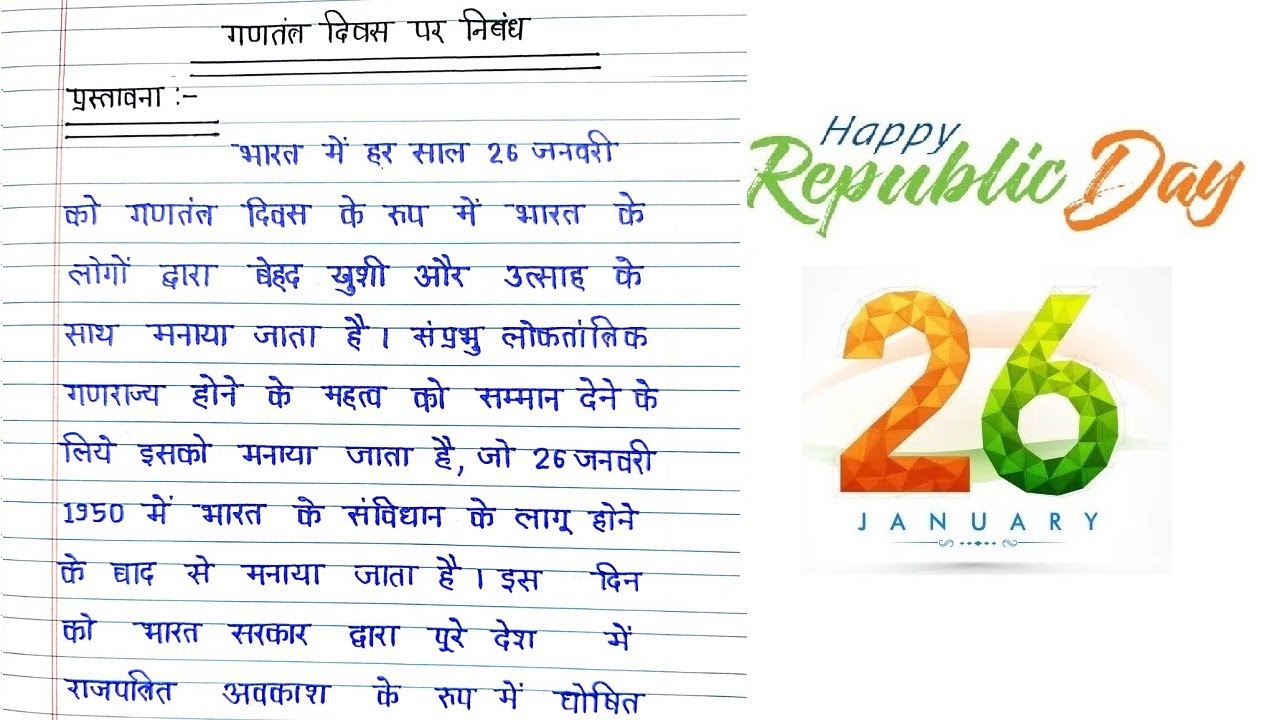 गणतंत्र दिवस पर निबंध
प्रस्तावना :-
भारत में हर साल 26 जनवरी
को गणतंत्र दिवस के रुप में भारत के
लोगों द्वारा बेहद खुशी और उत्साह के
साथ मनाया जाता है । संप्रभु लोकतांत्रिक
गणराज्य होने के महत्व को सम्मान देने के
लिये इसको मनाया जाता है, जो 26 जनवरी
1950 में भारत के संविधान के लागू होने
के बाद से मनाया जाता है । इस दिन
को भारत सरकार द्वारा पूरे देश में
राजपत्रित अवकाश के रुप में घोषित
Happy
Republic Day
26
JANUARY